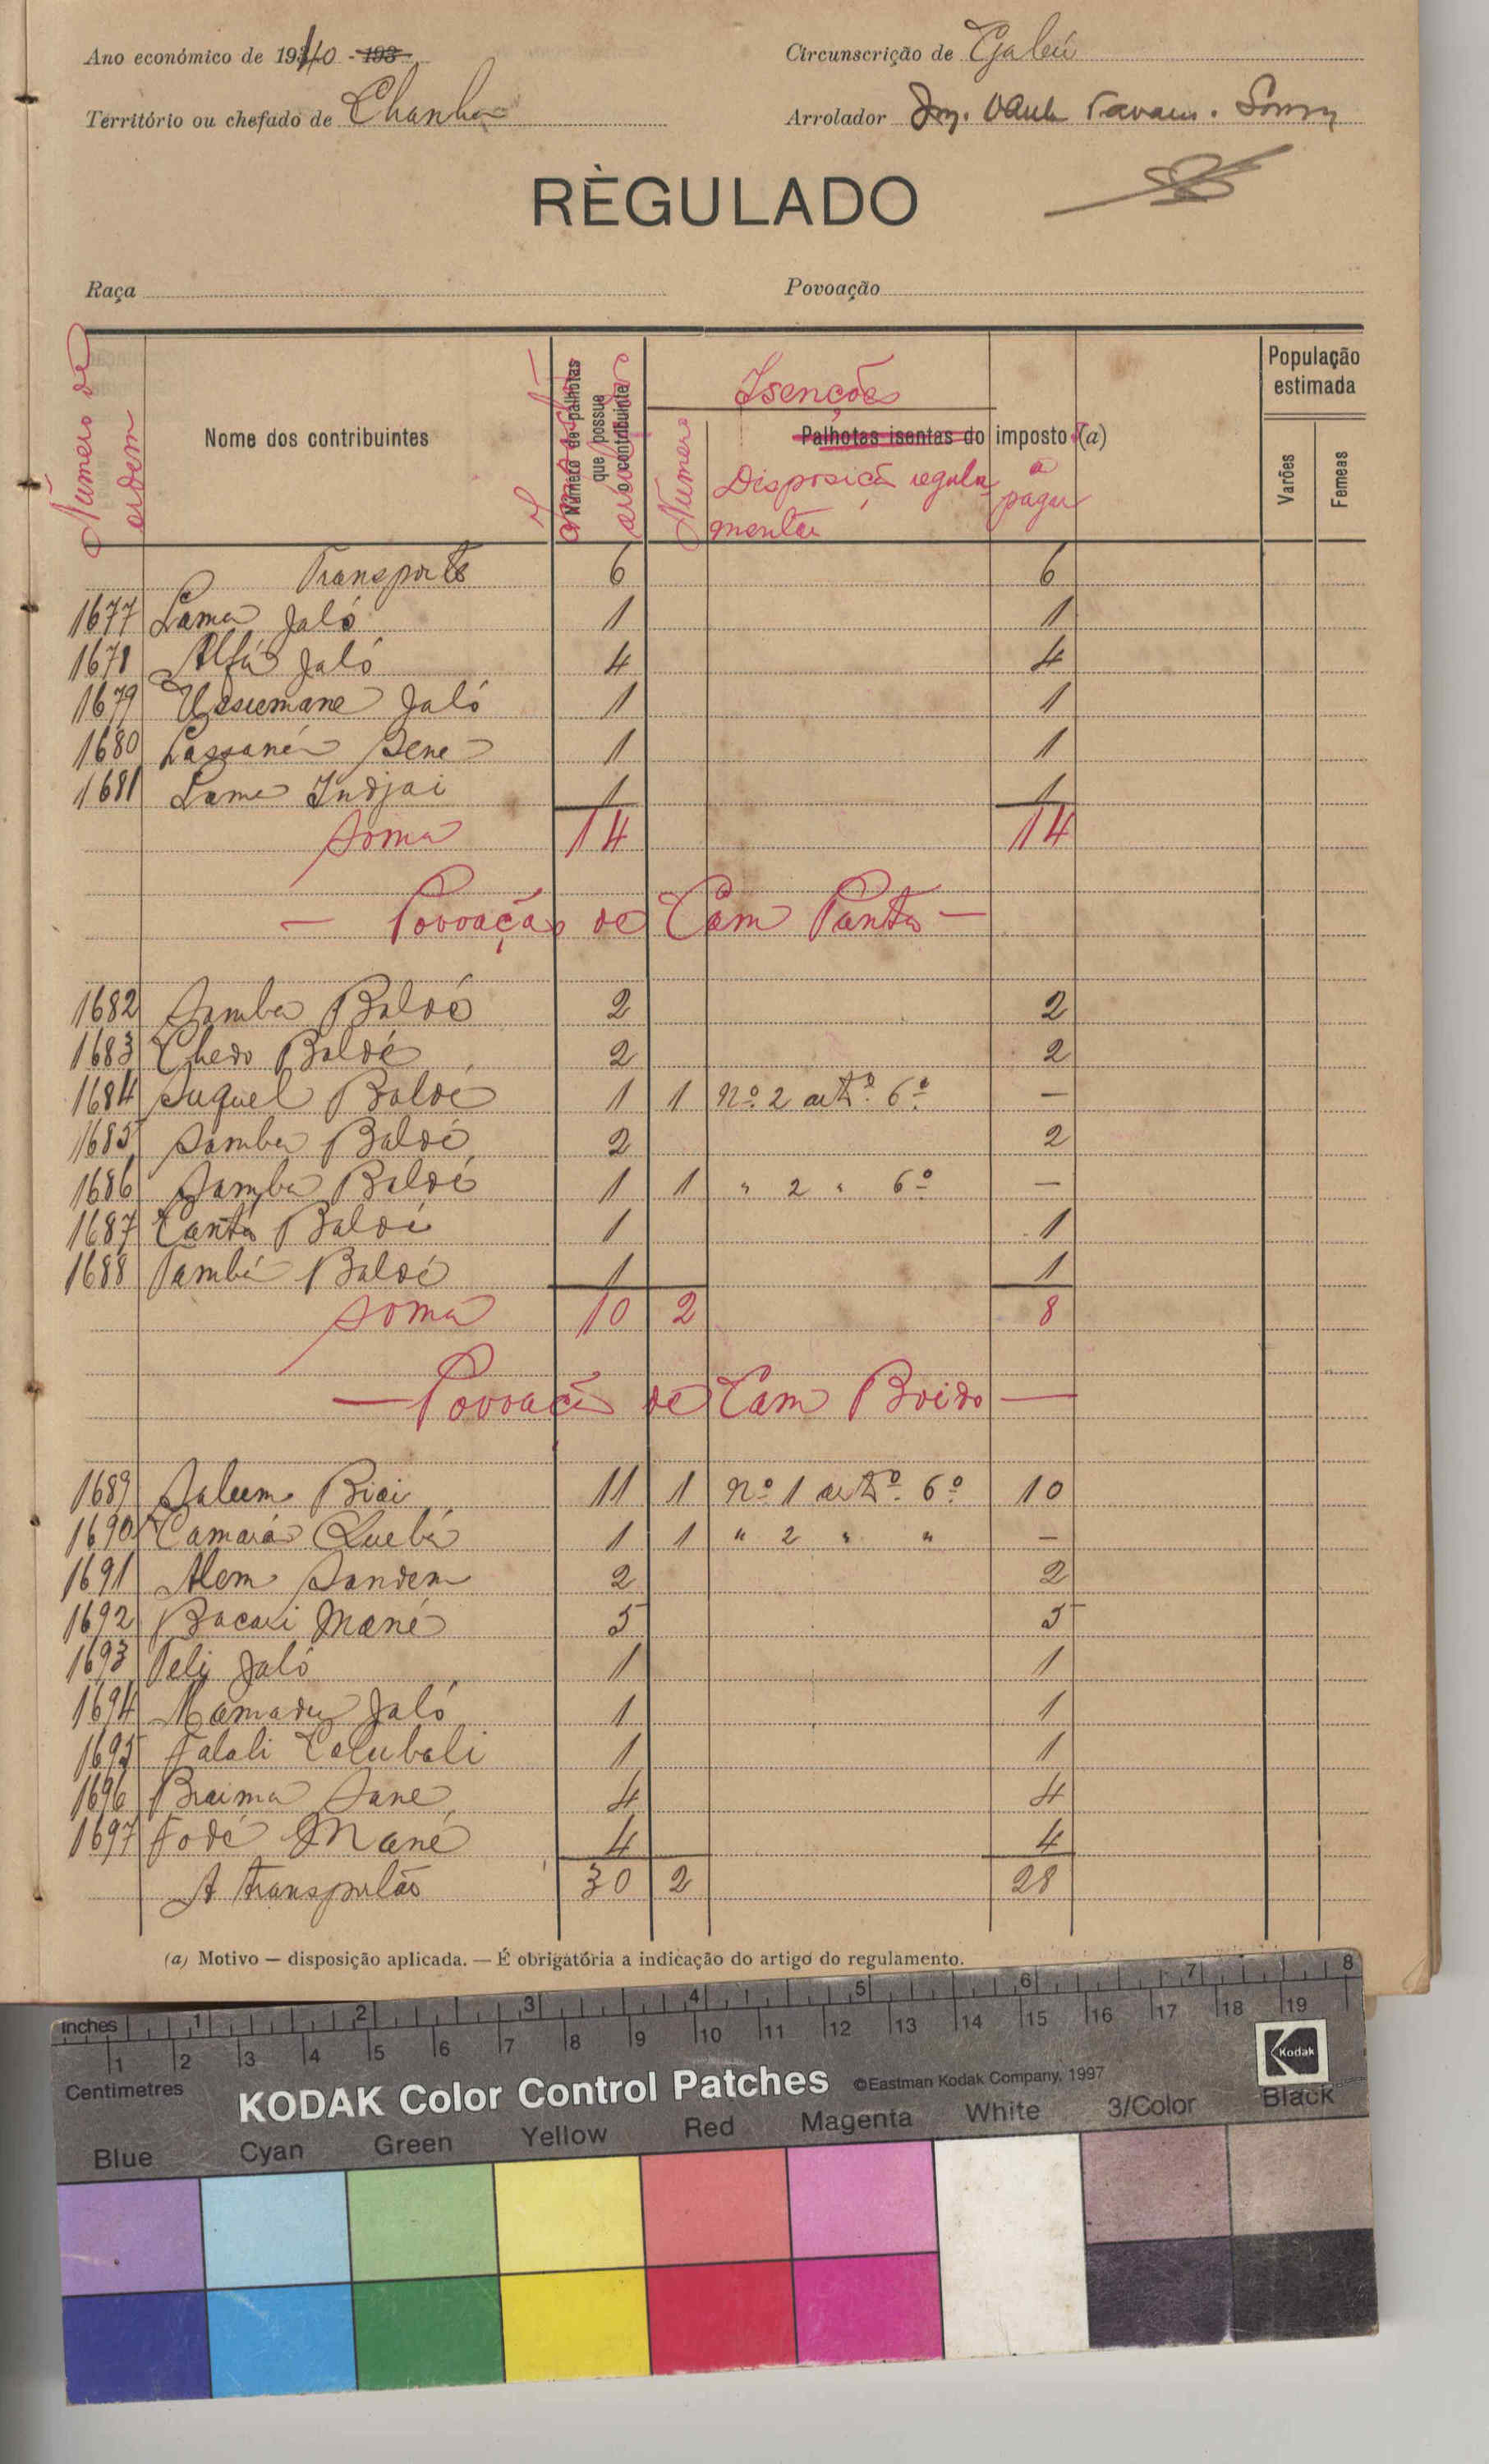 Ano económico de 1940 - 193
Circunscrição de Gabú
Território ou chefado de Chanha
Arrolador
RÈGULADO
Raça
Povoação
Número de ordem
Nome dos contribuintes
Número de palhotas que possue o contribuinte
Isenções
Número
Palhotas isentas do imposto (a)
Disposição regulamentar
a pagar
População estimada
Varões
Femeas
Transporte 6 6
1677 Lama Jaló 1 1
1678 Alfá Jaló 4 4
1679 Ussumane Jaló 1 1
1680 Lassaná Sene 1 1
1681 Lama Indjai 1 1
Soma 14 14
— Povoação de Cam Panta —
1682 Samba Baldé 2 2
1683 Chedo Baldé 2 2
1684 Suquel Baldé 1 1 nº 2 artº 6º —
1685 Samba Baldé 2 2
1686 Samba Baldé 1 1 " 2 " 6º —
1687 Canta Baldé 1 1
1688 Pambá Baldé 1 1
Soma 10 2 8
— Povoação de Cam Boido —
1689 Salum Biai 11 1 nº 1 artº 6º 10
1690 Camará Quebá 1 1 " 2 " " —
1691 Alem Sandem 2 2
1692 Bacari Mané 5 5
1693 Peli Jaló 1 1
1694 Mamadu Jaló 1 1
1695 Falali Colubali 1 1
1696 Braima Sane 4 4
1697 Fodé Mané 4 4
A transportar 30 2 28
(a) Motivo — disposição aplicada. — É obrigatória a indicação do artigo do regulamento.
inches 1 2 3 4 5 6 7 8
1 2 3 4 5 6 7 8 9 10 11 12 13 14 15 16 17 18 19
Centimetres
KODAK Color Control Patches ©Eastman Kodak Company, 1997
Kodak
Blue Cyan Green Yellow Red Magenta White 3/Color Black